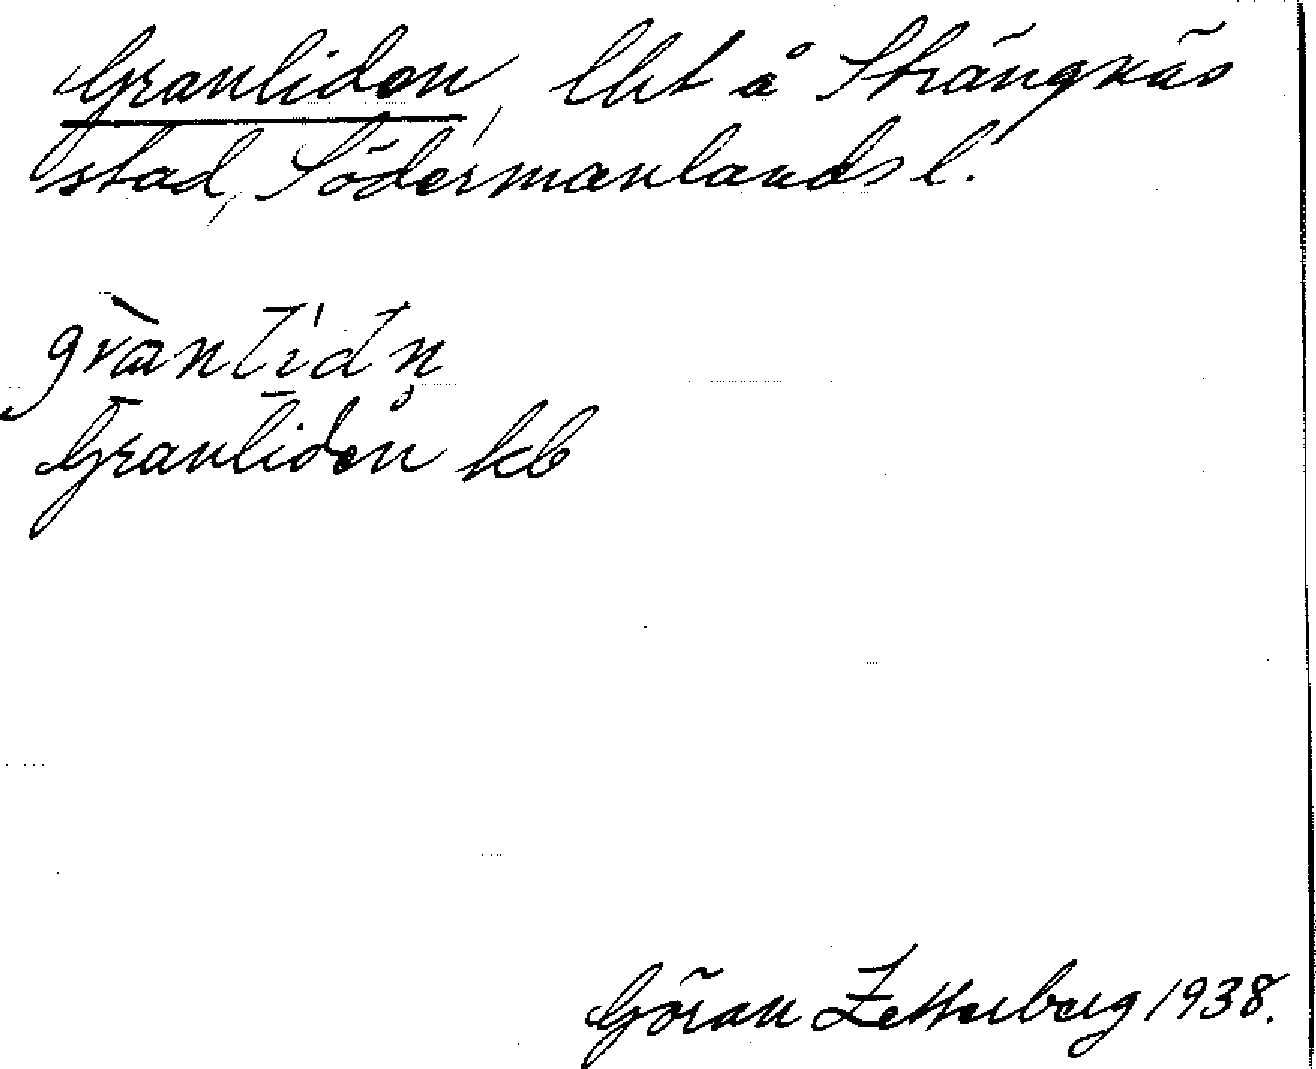 Granliden, lht å Strängnäs
stad, Södermanlands l.
grànlīdn̥
Granliden kb
Göran Zetterberg 1938.